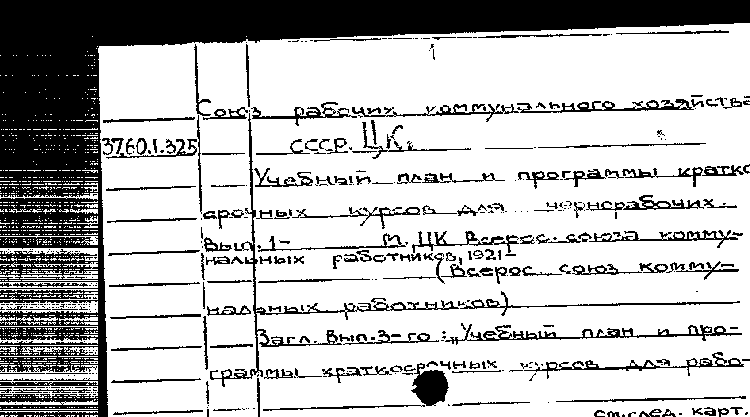 1
Союз рабочих коммунального хозяйства
37.60.1.325 СССР. ЦК.
Учебный план и программы кратко
срочных курсов для чернорабочих.
Вып. 1- М., ЦК Всерос. союза комму-
нальных работников, 1921-
(Всерос. союз комму-
нальных работников)
Загл. Вып. 3-го: „Учебный план и про-
граммы краткосрочных курсов для рабо-
См. след. карт.